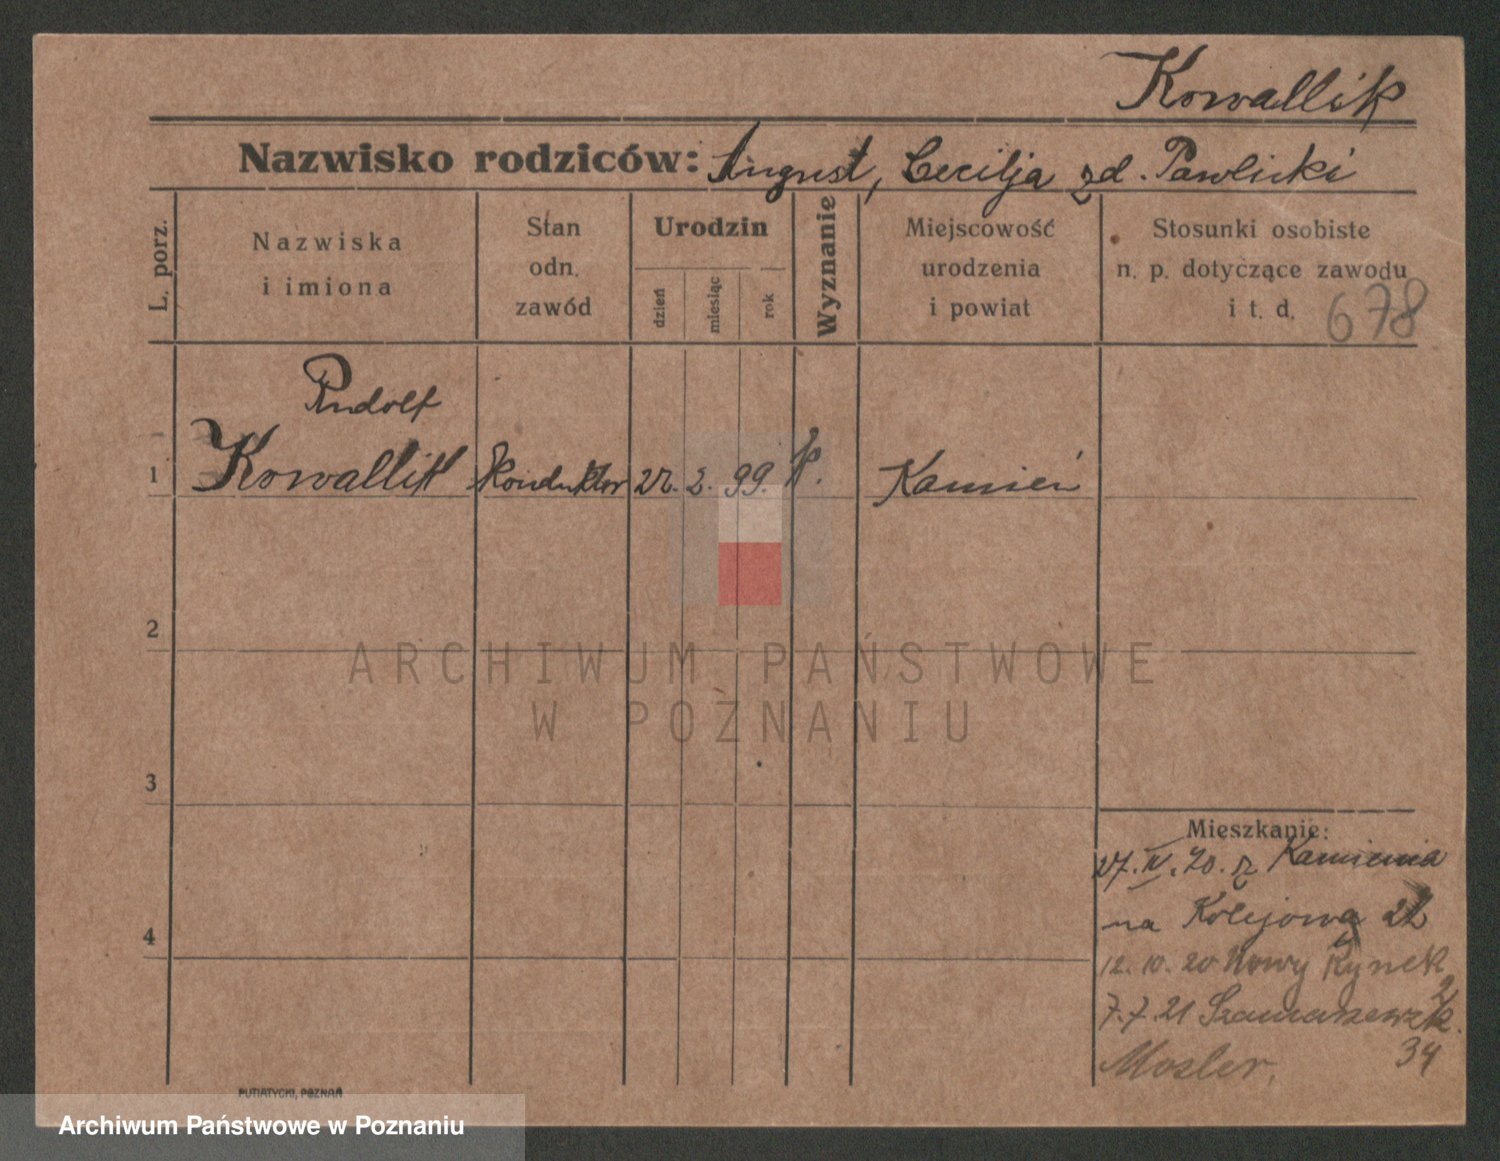 Kowallik
Nazwisko rodziców: August, Cecilja zd. Pawlicki
L. porz.
Nazwiska
i imiona
Stan
odn.
zawód
Urodzin
dzień
miesiąc
rok
Wyznanie
Miejscowość
urodzenia
i powiat
Stosunki osobiste
n. p. dotyczące zawodu
i t. d.
678
Rudolf
1 Kowallik konduktor 22. 2. 99. k. Kamień
2
3
4
ARCHIWUM PAŃSTWOWE
W POZNANIU
Mieszkanie:
27. IV. 20. z Kamienia
na Kolejową
12. 10. 20 Nowy Rynek
2
7. 7. 21 Szamarzewsk.
34
Mosler.
PUTIATYCKI, POZNAŃ
Archiwum Państwowe w Poznaniu